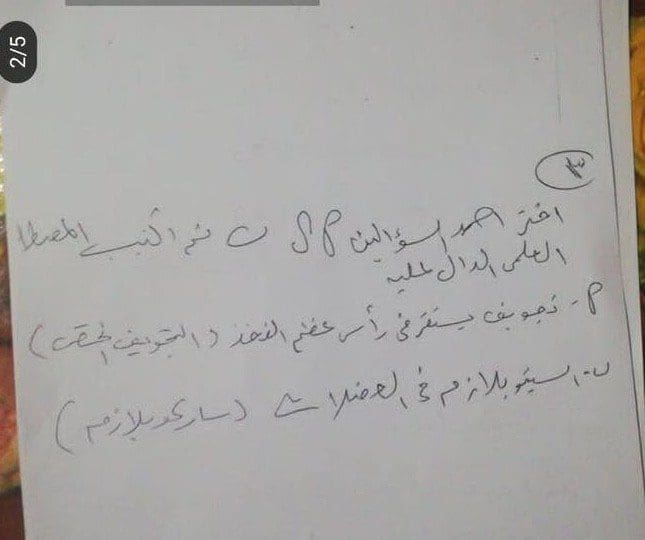 2/5
٣
اختر احد السؤالين P أو ب ثم اكتب المصطلح
العلمى الدال عليه
P - تجويف يستقر فى رأس عظم الفخذ (التجويف الحقى)
ب - السيتوبلازم فى العضلات (ساركوبلازم)